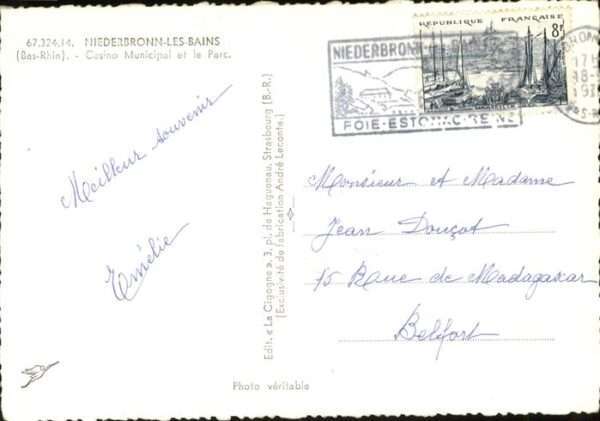 67.324.14. NIEDERBRONN-LES-BAINS
(Bas-Rhin). - Casino Municipal et le Parc.
Meilleur souvenir
Emélie
Edit. « La Cigogne », 3, pl. de Haguenau, Strasbourg (B.-R.)
(Exclusivité de fabrication André Leconte.)
Photo véritable
RÉPUBLIQUE FRANÇAISE
8F
NIEDERBRONN-LES-BAINS
FOIE-ESTOMAC-REINS
Monsieur et Madame
Jean Douçot
15 Rue de Madagascar
Belfort